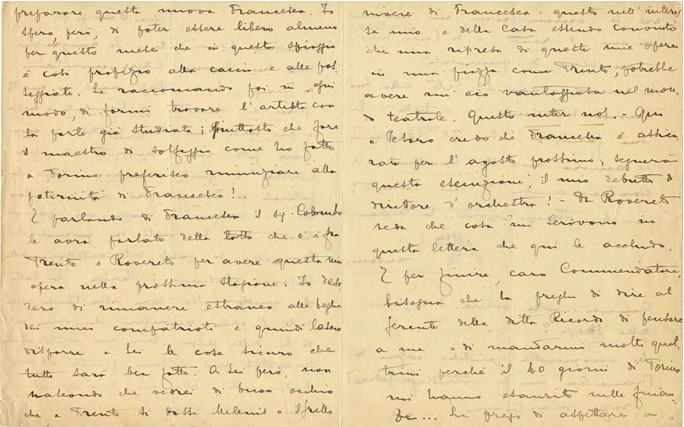 preparare questa nuova Francesca. Io
spero, però, di poter essere libero almeno
per questo mese che in questa spiaggia
è così propizio alla caccia e alle pas-
seggiate. Le raccomando poi in ogni
modo, di farmi trovare l'artista con
la parte già studiata; piuttosto che fare
il maestro di solfeggio come ho fatto
a Torino preferisco rinunziare alla
paternità di Francesca!..
E parlando di Francesca il sig. Colombo
le avrà parlato della lotta che c'è fra
Trento e Rovereto per avere questa mia
opera nella prossima stagione. Io desi-
dero di rimanere estraneo alle beghe
dei miei compatrioti e quindi lascio
disporre a Lei le cose sicuro che
tutto sarà ben fatto. A Lei però, non
nascondo che vedrei di buon occhio
che a Trento si dasse Melenis o
novere di Francesca. questo nell'interes-
se mio e della Casa essendo convinto
che una ripresa di queste mie opere
in una piazza come Trento, potrebbe
avere un'eco vantaggiosa nel mon-
do teatrale. Questo inter nos. - Qui
a Pesaro credo che Francesca è assicu-
rata per l'agosto prossimo; segnerà
questa esecuzione, il mio debutto di
direttore d'orchestra! - Da Rovereto
veda che cosa mi scrivono in
questa lettera che qui le accludo.
E per finire, caro Commendatore,
bisogna che la preghi di dire al
gerente della ditta Ricordi di pensare
a me e di mandarmi molti quat-
trini perchè i 40 giorni di Torino
mi hanno esaurito nelle finan-
ze... La prego di aspettare a